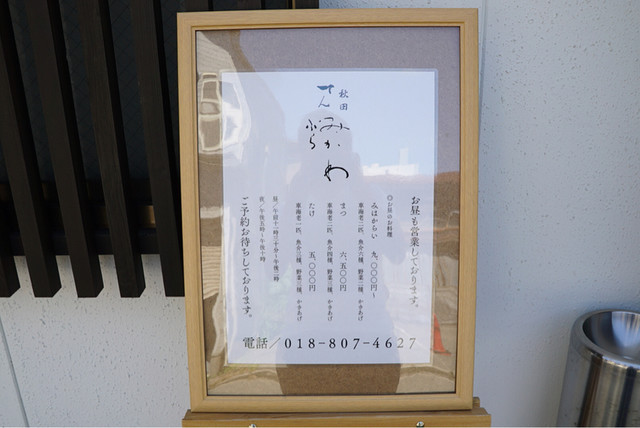 秋田
てん
ぷら
みかわ
お昼も営業しております。
◎お昼のお料理
みはからい 九、〇〇〇円〜
車海老二匹、魚介六種、野菜二種、かきあげ
まつ 六、五〇〇円
車海老二匹、魚介四種、野菜二種、かきあげ
たけ 五、〇〇〇円
車海老二匹、魚介三種、野菜二種、かきあげ
昼／午前十一時三十分〜午後二時
夜／午後五時〜午後十時
ご予約お待ちしております。
電話／018-807-4627